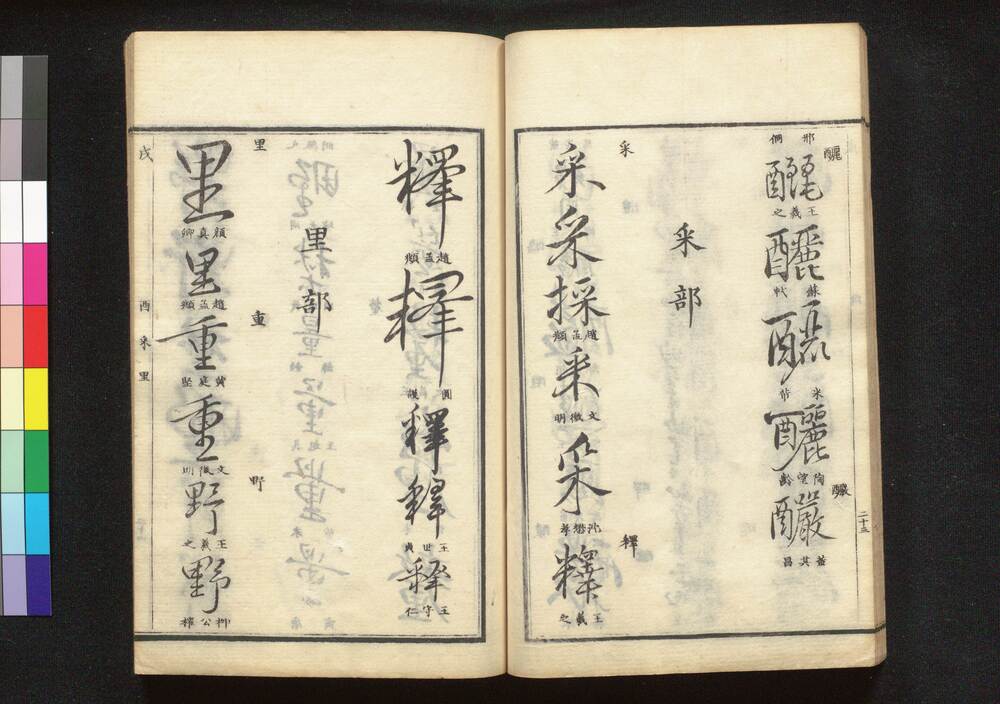 醲
邢侗
釃
王羲之
釃
蘇軾
釃
米芾
釃
陶望齡
釅
釅
董其昌
二十五
釆部
采
采
采
採
趙孟頫
采
文徵明
采
沈懋孝
釋
釋
王羲之
釋
趙孟頫
釋
釋
釋
王世貞
釋
王守仁
里部
里
里
顏真卿
里
趙孟頫
重
重
黃庭堅
重
文徵明
野
野
王羲之
野
柳公權
戌
酉釆里